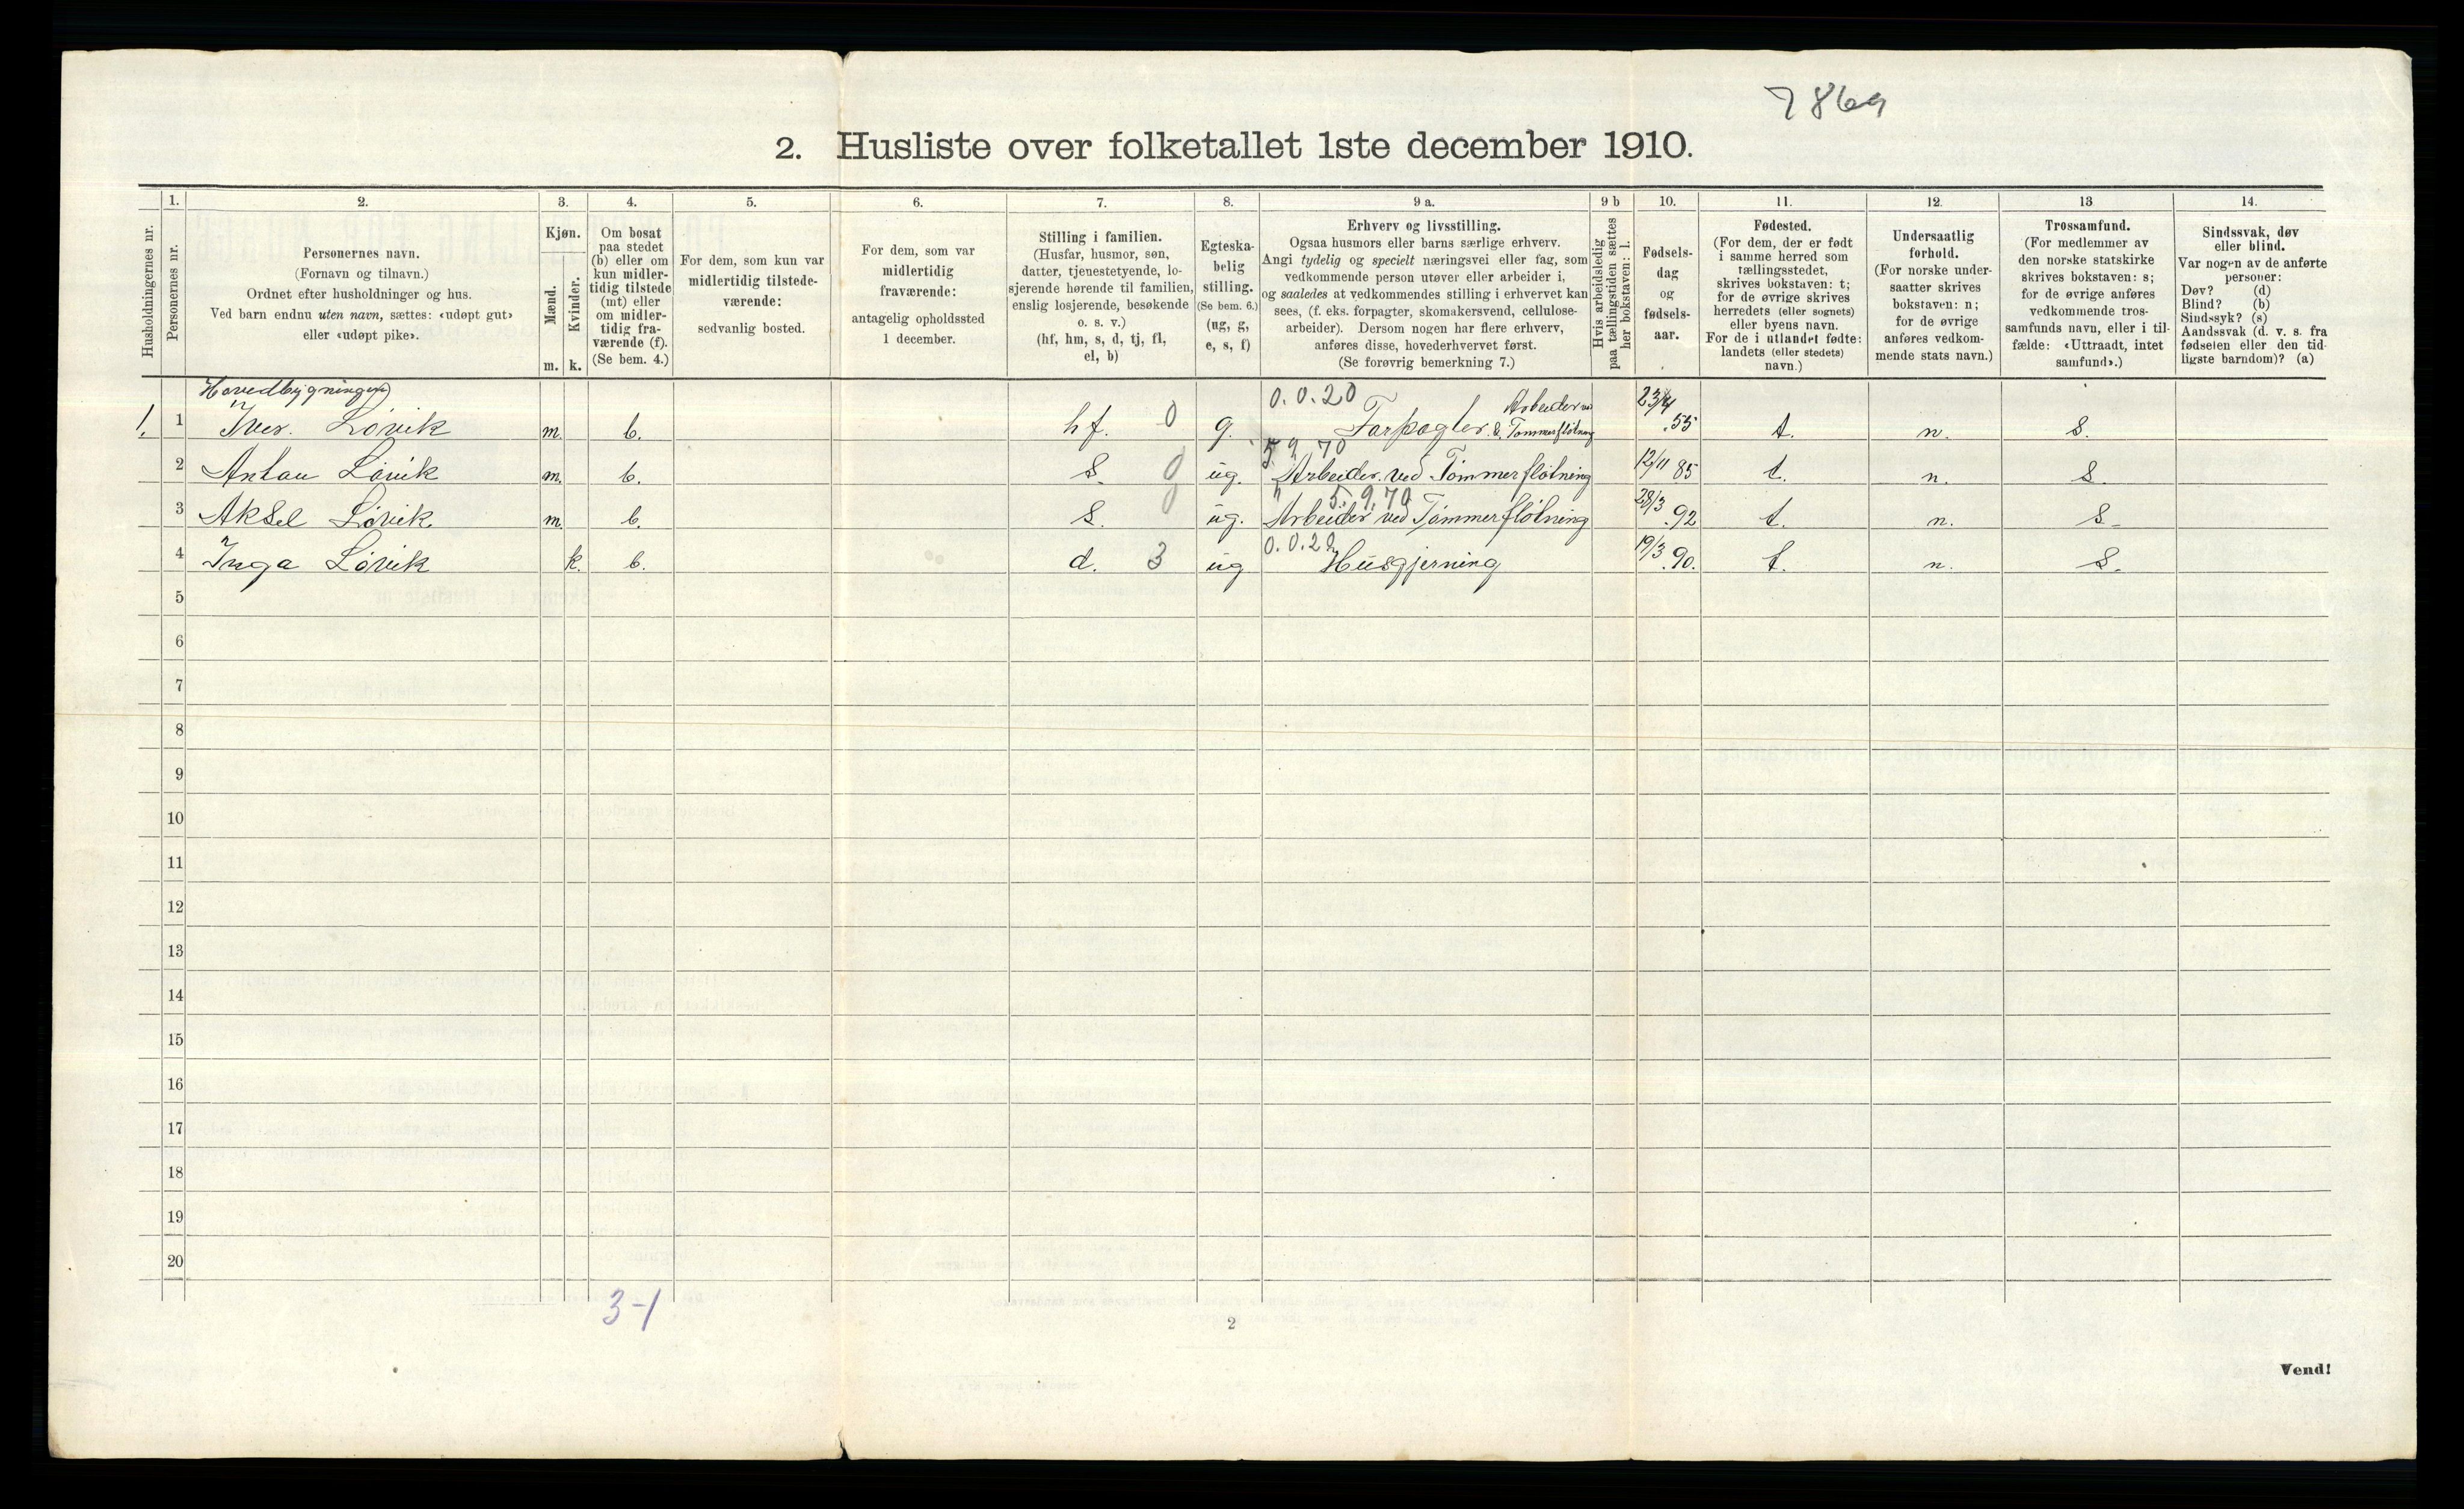 7869
2. Husliste over folketallet 1ste december 1910.
Husholdningernes nr.
1.
Personernes nr.
2.
Personernes navn.
(Fornavn og tilnavn.)
Ordnet efter husholdninger og hus.
Ved barn endnu uten navn, sættes: «udøpt gut»
eller «udøpt pike».
3.
Kjøn.
Mænd.
Kvinder.
m. k.
4.
Om bosat
paa stedet
(b) eller om
kun midler-
tidig tilstede
(mt) eller
om midler-
tidig fra-
værende (f).
(Se bem. 4.)
5.
For dem, som kun var
midlertidig tilstede-
værende:
sedvanlig bosted.
6.
For dem, som var
midlertidig
fraværende:
antagelig opholdssted
1 december.
7.
Stilling i familien.
(Husfar, husmor, søn,
datter, tjenestetyende, lo-
sjerende hørende til familien,
enslig losjerende, besøkende
o. s. v.)
(hf, hm, s, d, tj, fl,
el, b)
8.
Egteska-
belig
stilling.
(Se bem. 6.)
(ug, g,
e, s, f)
9 a.
Erhverv og livsstilling.
Ogsaa husmors eller barns særlige erhverv.
Angi tydelig og specielt næringsvei eller fag, som
vedkommende person utøver eller arbeider i,
og saaledes at vedkommendes stilling i erhvervet kan
sees, (f. eks. forpagter, skomakersvend, cellulose-
arbeider). Dersom nogen har flere erhverv,
anføres disse, hovederhvervet først.
(Se forøvrig bemerkning 7.)
9 b
Hvis arbeidsledig
paa tællingstiden sættes
her bokstaven: l.
10.
Fødsels-
dag
og
fødsels-
aar.
11.
Fødested.
(For dem, der er født
i samme herred som
tællingsstedet,
skrives bokstaven: t;
for de øvrige skrives
herredets (eller sognets)
eller byens navn.
For de i utlandet fødte:
landets (eller stedets)
navn.)
12.
Undersaatlig
forhold.
(For norske under-
saatter skrives
bokstaven: n;
for de øvrige
anføres vedkom-
mende stats navn.)
13
Trossamfund.
(For medlemmer av
den norske statskirke
skrives bokstaven: s;
for de øvrige anføres
vedkommende tros-
samfunds navn, eller i til-
fælde: «Uttraadt, intet
samfund».)
14.
Sindssvak, døv
eller blind.
Var nogen av de anførte
personer:
Døv? (d)
Blind? (b)
Sindssyk? (s)
Aandssvak (d. v. s. fra
fødselen eller den tid-
ligste barndom)? (a)
Hovedbygningen) 0.0.20
1. 1 Iver. Lövik m. b. hf. 0 g. Forpagter. & Arbeider ved Tømmerfløtning 23/4 .55 t. n. s.
5.9.70
2 Anton Lövik m. b. s. 0 ug. Arbeider ved Tømmerfløtning 12/11 85 t. n. s.
5.9.70
3 Aksel Lövik. m. b. s. 0 ug. Arbeider ved Tømmerfløtning 28/3 .92 t. n. s.
0.0.20
4 Inga Lövik k. b. d. 3 ug Husgjerning 19/3 .90. t. n. s.
5
6
7
8
9
10
11
12
13
14
15
16
17
18
19
20
3-1
2
Vend!